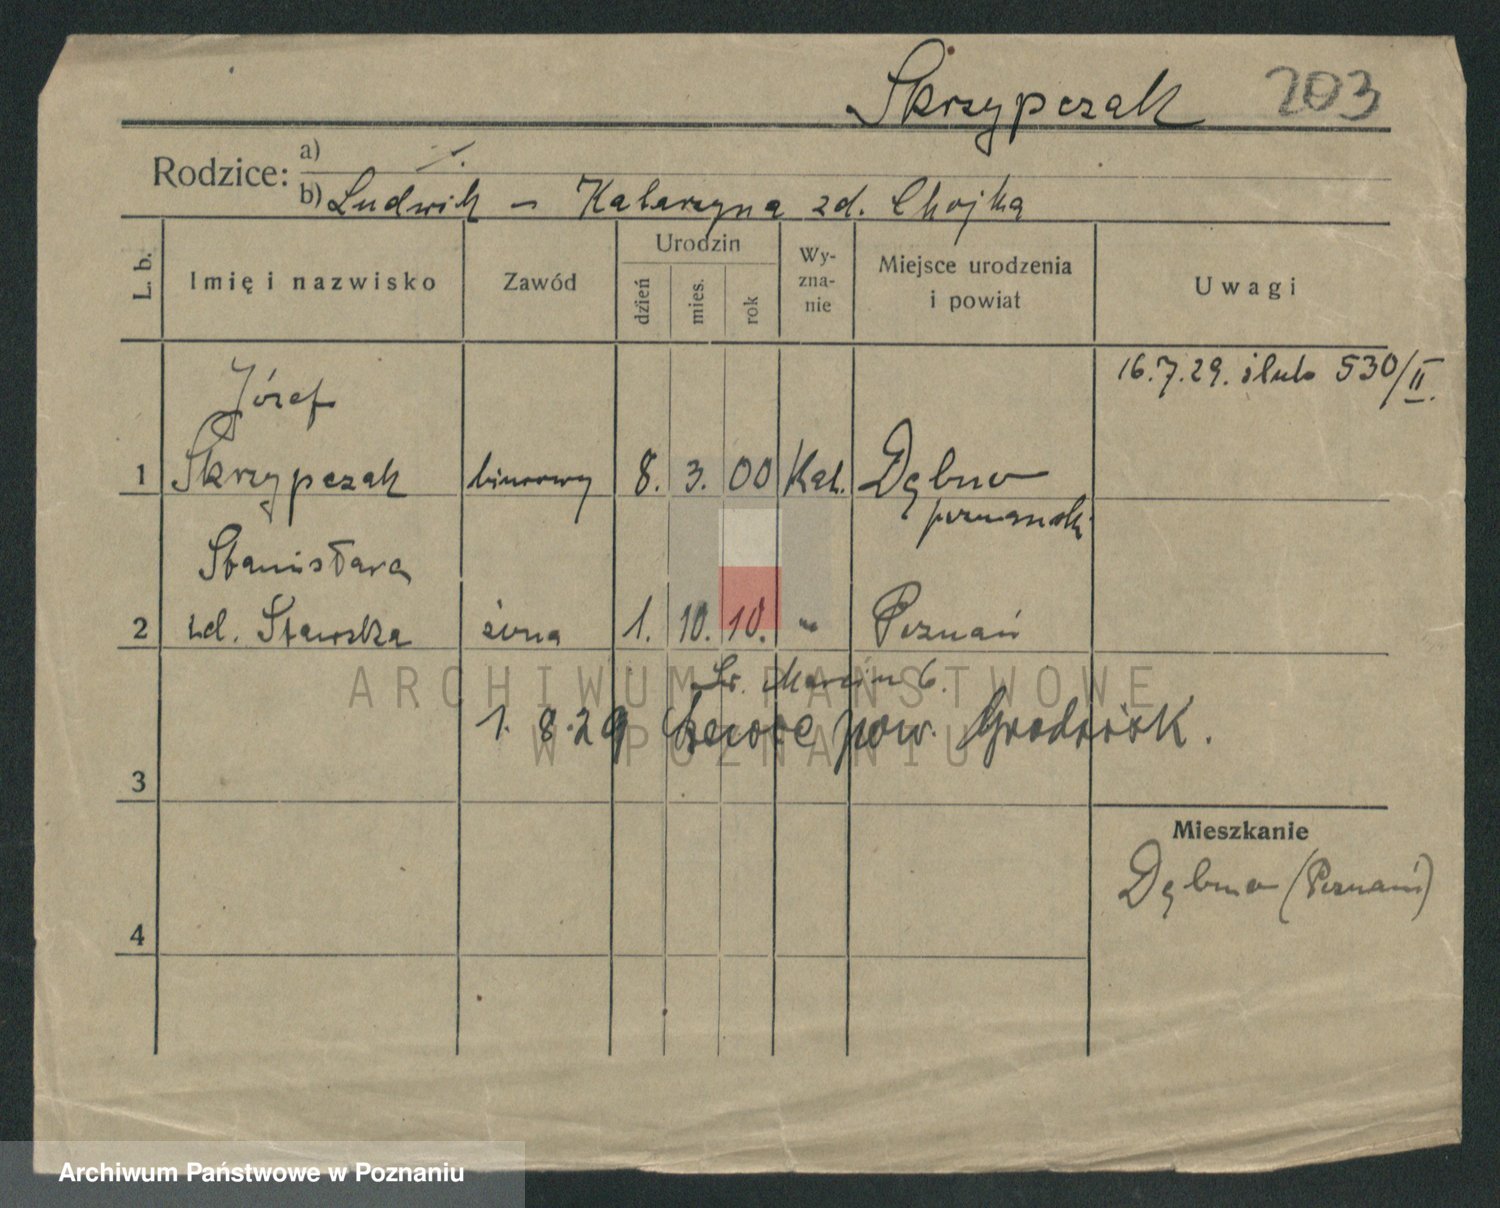 Skrzypczak 203
Rodzice: a) ./.
b) Ludwik – Katarzyna zd. Chojka
L. b.
Imię i nazwisko
Zawód
Urodzin
dzień
mies.
rok
Wy-
zna-
nie
Miejsce urodzenia
i powiat
Uwagi
16.7.29. ślub 530/II.
Józef
1 Skrzypczak biurowy 8. 3. 00 Kat. Dębno
poznański
Stanisława
2 zd. Stawska żona 1. 10. 10. " Poznań
Św. Marcin 6.
1. 8. 29 pow. Grodzisk.
3
4
Mieszkanie
Dębno (Poznań)
ARCHIWUM PAŃSTWOWE
W POZNANIU
Archiwum Państwowe w Poznaniu